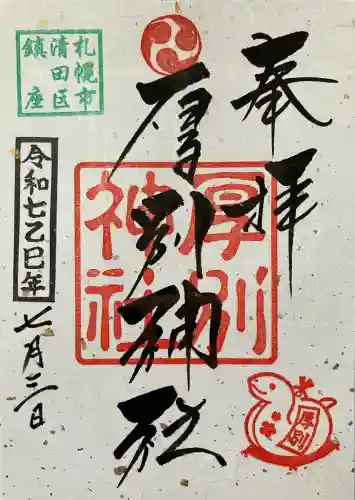 奉拝
厚別神社
厚別
神社
札幌市
清田区
鎮座
令和七乙巳年
七月三日
厚別